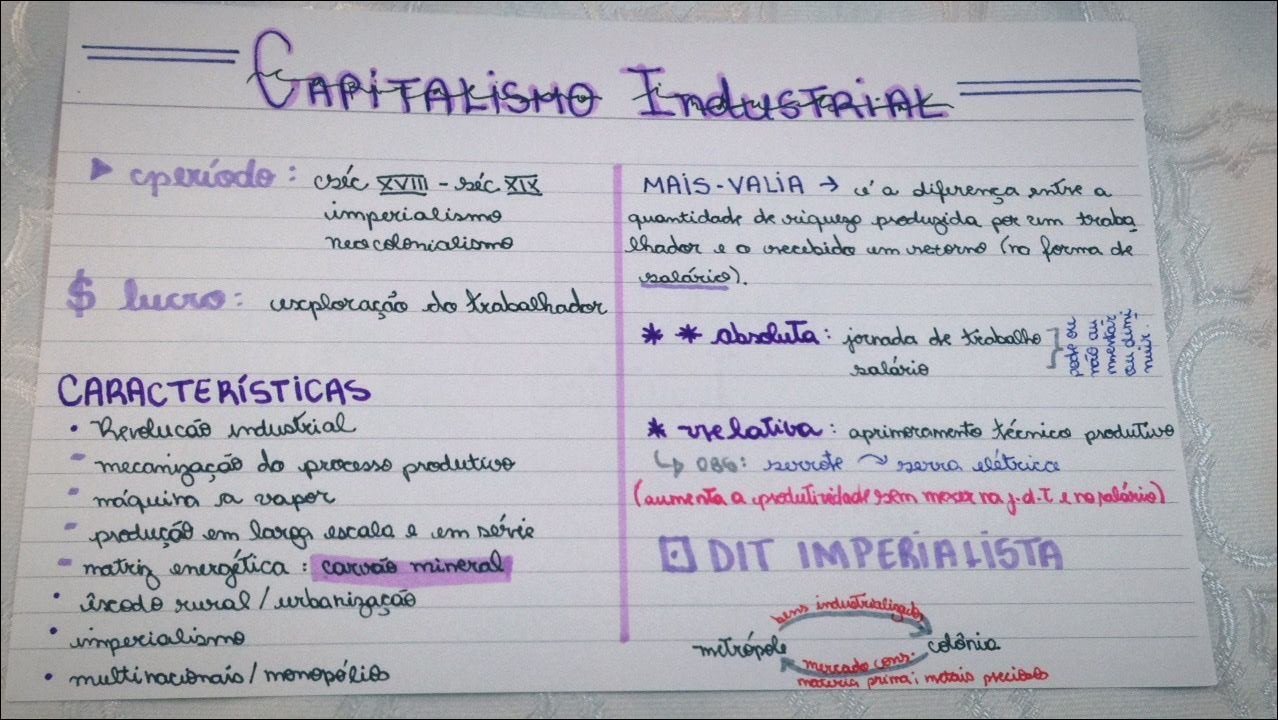 CAPITALISMO INDUSTRIAL
período: séc XVIII - séc XIX
imperialismo
neocolonialismo
$ lucro: exploração do trabalhador
CARACTERÍSTICAS
• Revolucão industrial
- mecanização do processo produtivo
- máquina a vapor
- produção em larga escala e em série
- matriz energética: carvão mineral
• êxodo rural / urbanização
• imperialismo
• multinacionais / monopólios
MAIS-VALIA → é a diferença entre a
quantidade de riqueza produzida por um traba
lhador e o recebido em retorno (na forma de
salário).
* * absoluta: jornada de trabalho
salário
pode ou
não au
mentar
ou dimi
nuir.
* relativa: aprimoramento técnico produtivo
↳ OBS: serrote → serra elétrica
(aumenta a produtividade sem mexer na j.d.T e no salário)
DIT IMPERIALISTA
bens industrializados
metrópole colônia
mercado cons.
materia prima; metais preciosos